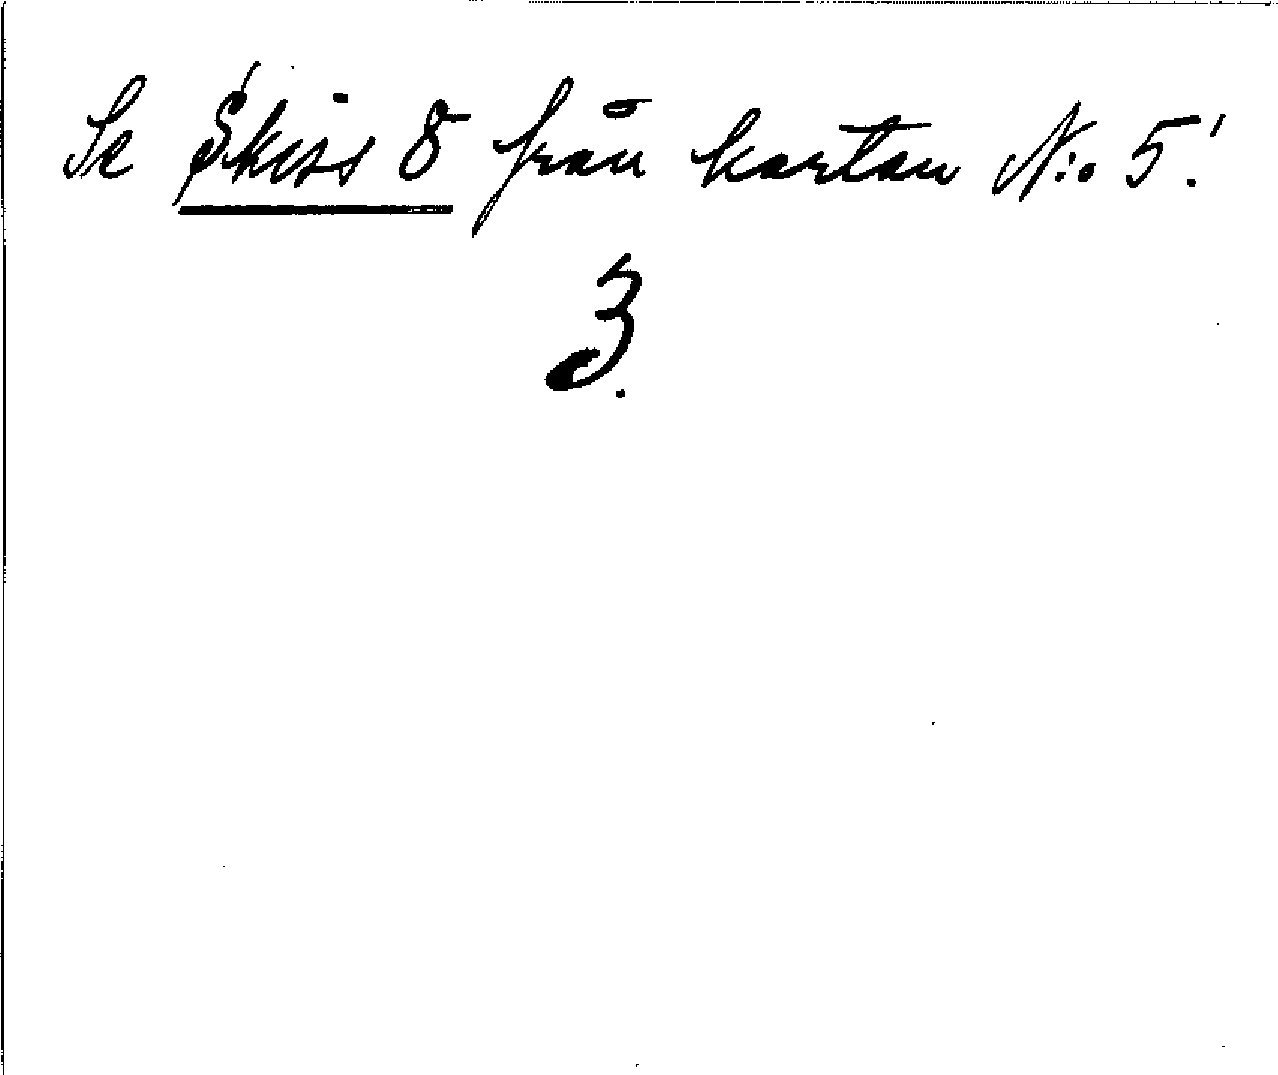 Se Skiss 8 från kartan N:o 5!
3.